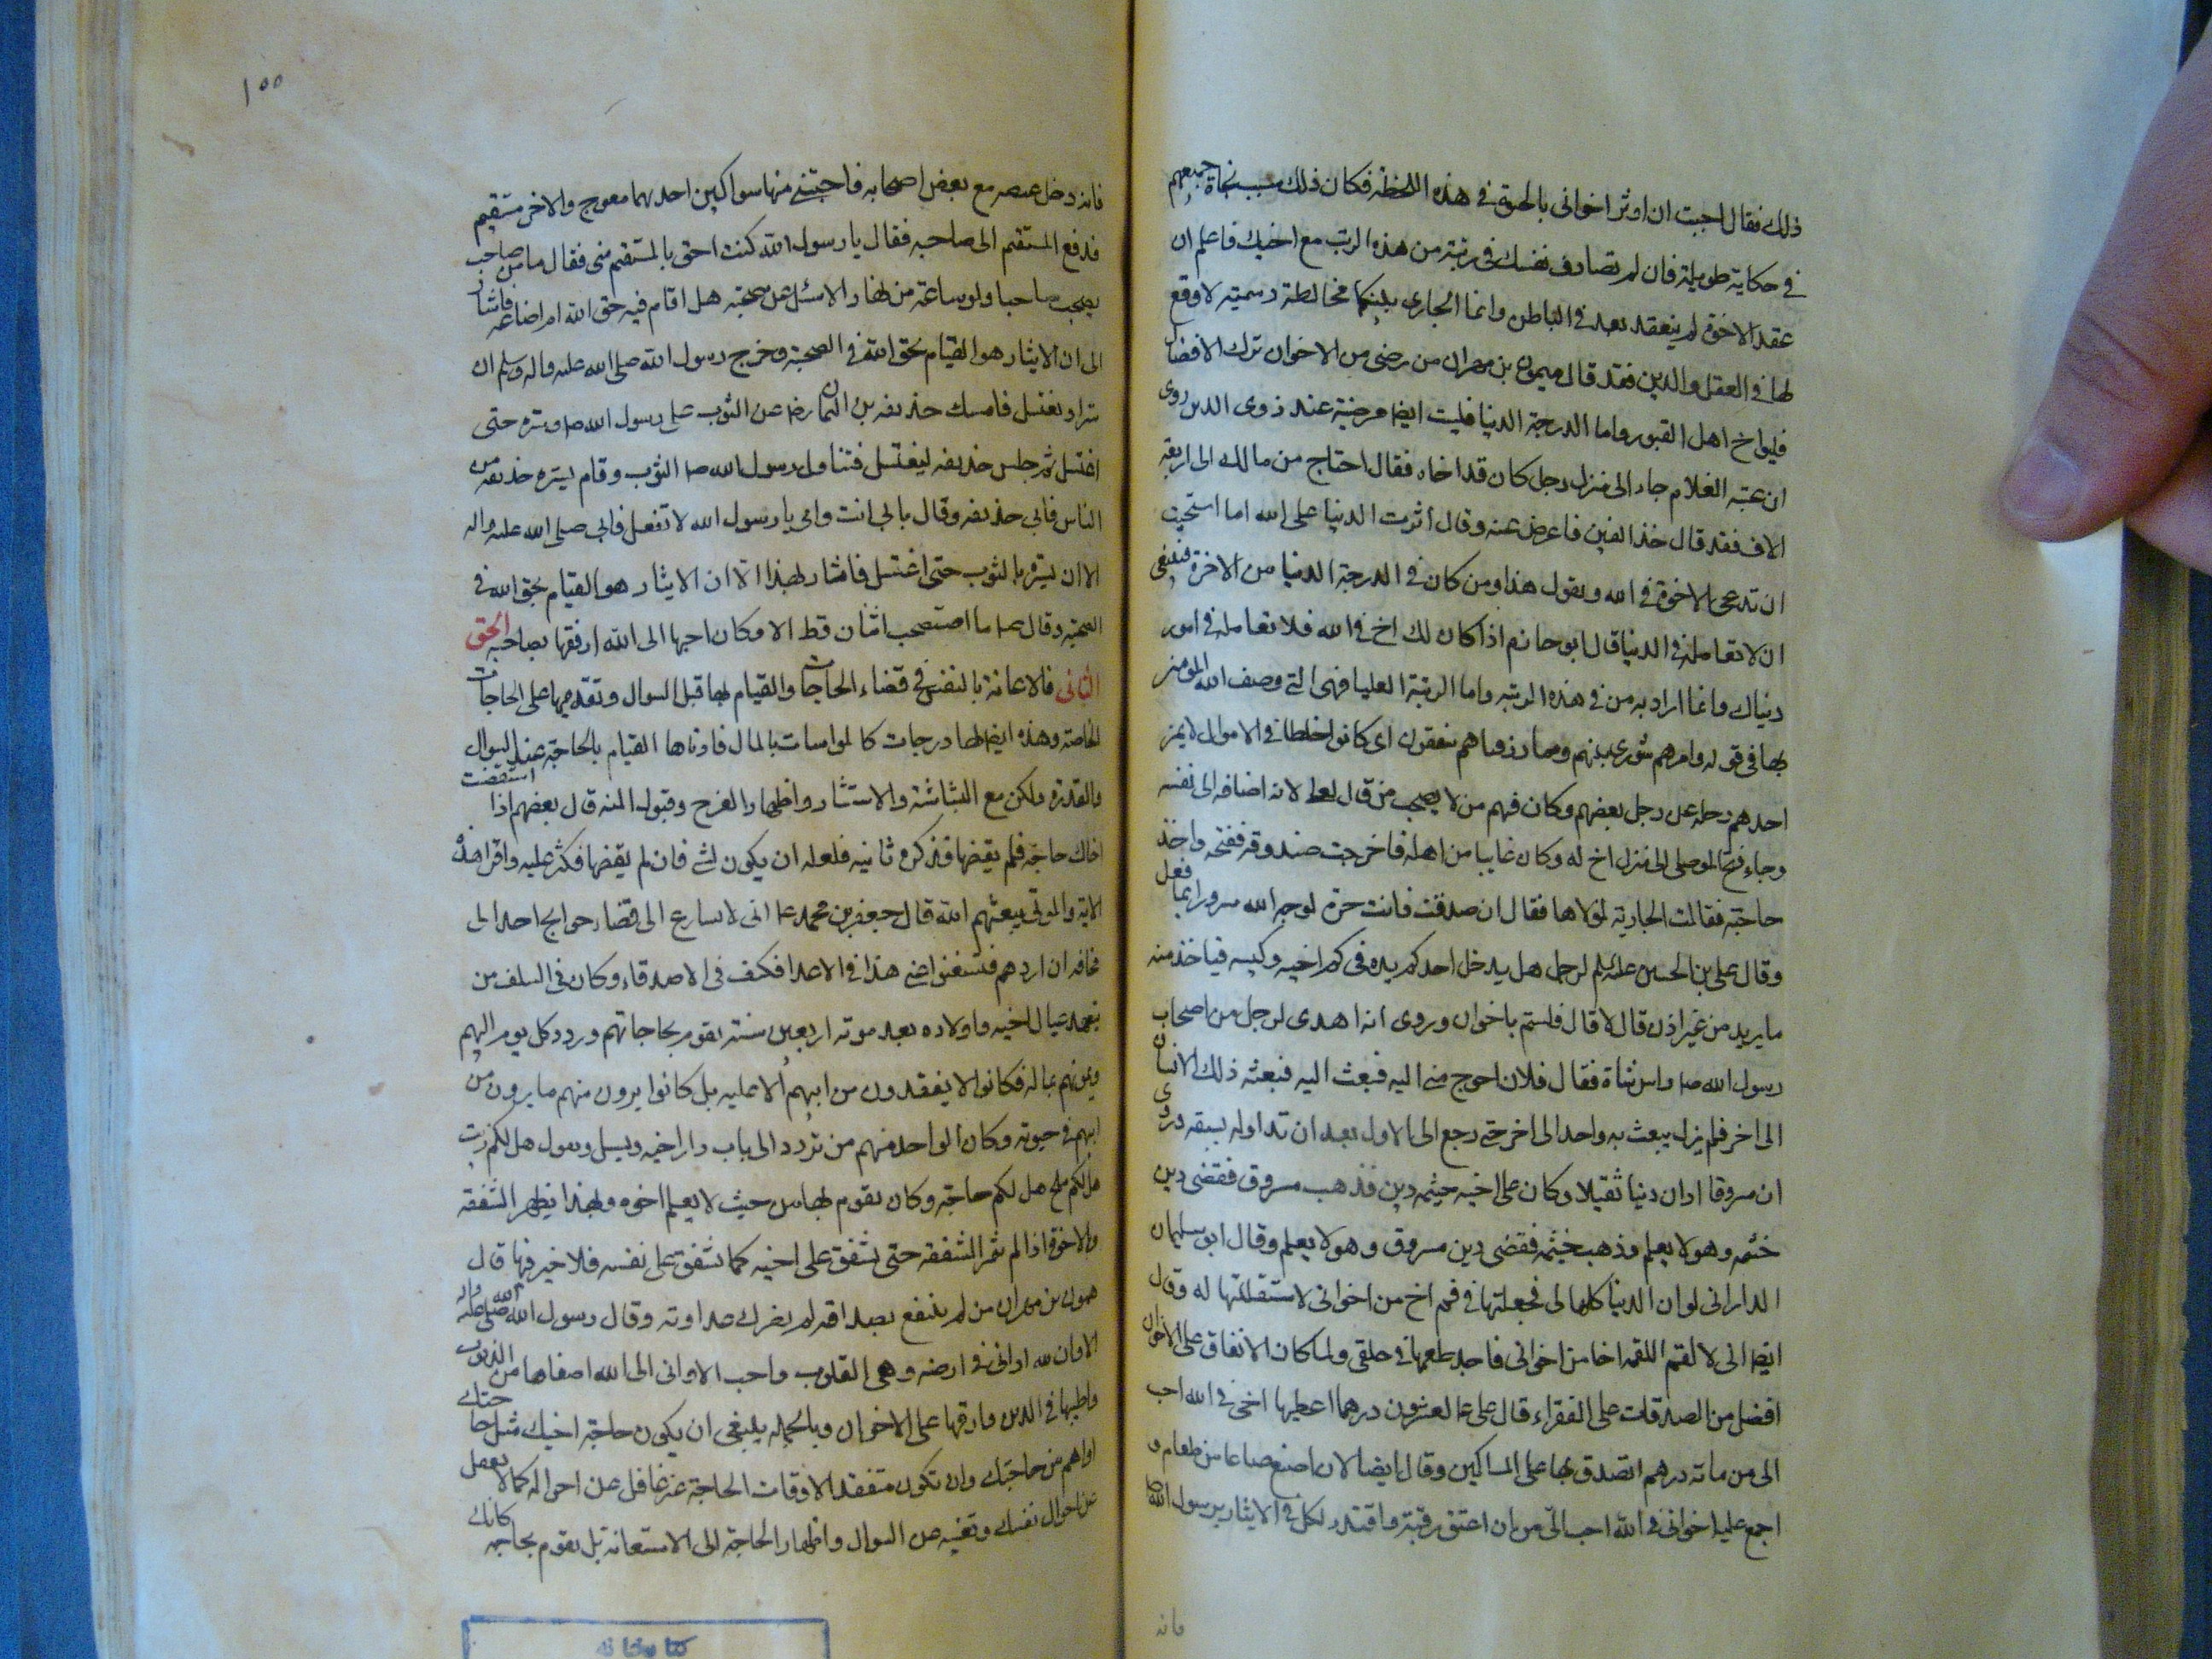 ذلك فقال احببت ان اوثر اخوانى بالحيوة فى هذه اللحظة فكان ذلك سبب نجاة جميعهم
فى حكاية طويلة فان لم تصادف نفسك فى رتبة من هذه الرتب مع اخيك فاعلم ان
عقد الاخوة لم ينعقد بعد فى الباطن وانما الجارى بينكما مخالطة رسمية لا وقع
لها فى العقل والدين فقد قال ميمون بن مهران من رضى من الاخوان ترك الافضال
فليواخ اهل القبور واما الدرجة الدنيا فليست ايضا مرضية عند ذوى الدين روى
ان عتبة الغلام جاء الى منزل رجل كان قد اخاه فقال احتاج من مالك الى اربعة
الاف فقد قال خذ الفين فاعرض عنه وقال اثرت الدنيا على الله اما استحييت
ان تدعى الاخوة فى الله وتقول هذا ومن كان فى الدرجة الدنيا من الاخوة فينبغى
ان لا تعامله فى الدنيا قال ابو حازم اذا كان لك اخ فى الله فلا تعامله فى امور
دنياك وانما اراد به من فى هذه الرتبه واما الرتبة العليا فهى التى وصف الله المومنين
بها فى قوله وامرهم شورى بينهم ومما رزقناهم ينفقون اى كانوا خلطا فى الاموال لا يميز
احدهم رحله عن رحل بعضهم وكان فيهم من لا يصحب من قال نعلى لانه اضافه الى نفسه
وجاء فتح الموصلى الى منزل اخ له وكان غايبا من اهله فاخرجت صندوقه ففتحه واخذ
حاجته فقالت الجارية لمولاها فقال ان صدقت فانت حرة لوجه الله سرورا بما فعل
وقال على بن الحسين عليه السلم لرجل هل يدخل احدكم يده فى كم اخيه وكيسه فياخذ منه
ما يريد من غير اذن قال لا قال فلستم باخوان وروى انه اهدى لرجل من اصحاب
رسول الله ص راس شاة فقال فلان احوج منى اليه فبعث اليه فبعثه ذلك الانسان
الى اخر فلم يزل يبعث به واحد الى اخر حتى رجع الى الاول بعد ان تداوله سبعة وروى
ان مسروقا ادان دينا ثقيلا وكان على اخيه خيثمه دين فذهب مسروق فقضى دين
خثمه وهو لا يعلم وذهب خيثمه فقضى دين مسروق وهو لا يعلم وقال ابو سليمان
الدارانى لو ان الدنيا كلها لى فجعلتها فى فم اخ من اخوانى لاستقللتها له وقال
ايضا انى لالقم اللقمة اخا من اخوانى فاجد طعمها فى حلقى ولما كان الانفاق على الاخوان
افضل من الصدقات على الفقراء قال على ع لعشرون درهما اعطيها اخى فى الله احب
الى من مائة درهم اتصدق بها على المساكين وقال ايضا لان اصنع صاعا من طعام و
اجمع عليه اخوانى فى الله احب الى من ان اعتق رقبة واقتدر لكل فى الايثار برسول الله ص
فانه
١٥٥
فانه دخل غيضه مع بعض اصحابه فاجتنى منها سواكين احدهما معوج والاخر مستقيم
فدفع المستقيم الى صاحبه فقال يا رسول الله كنت احق بالمستقيم منى فقال ما من صاحب
يصحب صاحبا ولو ساعة من نهار الا سئل عن صحبته هل اقام فيه حق الله ام اضاعه فاشار
الى ان الايثار هو القيام بحق الله فى الصحبة وخرج رسول الله صلى الله عليه واله وسلم الى
بئر ليغتسل فامسك حذيفه بن اليمان رضا عن الثوب على رسول الله ص وستره حتى
اغتسل ثم جلس حذيفه ليغتسل فتناول رسول الله ص الثوب وقام يستره حذيفه من
الناس فابى حذيفه وقال بابى انت وامى يا رسول الله لا تفعل فابى صلى الله عليه واله
الا ان يستره بالثوب حتى اغتسل فاشار لهذا الا ان الايثار هو القيام بحق الله فى
الصحبة وقال ع ما اصتصحب اثنان قط الا وكان احبهما الى الله ارفقهما بصاحبه الحق
الثانى فالاعانة بالنفس فى قضاء الحاجات والقيام لها قبل السوال وتقديمها على الحاجات
الخاصة وهذه ايضا لها درجات كالمواسات بالمال فادناها القيام بالحاجة عند السوال
والقدرة ولكن مع البشاشة والاستبشار واظهار الفرح وقبول المنه قال بعضهم اذا استقضيت
اخاك حاجة فلم يقضها فذكره ثانيه فلعله ان يكون نسى فان لم يقضها فكبر عليه واقرا هذه
الاية والموتى يبعثهم الله قال جعفر بن محمد ع انى لاسارع الى قضاء حوايج اعدائى
مخافة ان اردهم فيستغنوا عنى هذا فى الاعدا فكيف فى الاصدقاء وكان فى السلف من
تفقد عيال اخيه واولاده بعد موته اربعين سنة يقوم بحاجاتهم ويتردد كل يوم اليهم
ويمونهم بماله فكانوا لا يفقدون من ابيهم الا عينه بل كانوا يرون منهم ما يرون من
ابيهم فى حيوته وكان الواحد منهم من تردد الى باب دار اخيه ويسل ويقول هل لكم زيت
هل لكم ملح هل لكم حاجة وكان يقوم بها من حيث لا يعلم اخوه ولهذا يظهر الشفقه
والاخوة اذا لم تثمر الشفقه حتى يشفق على اخيه كما يشفق على نفسه فلا خير فيها قال
ميمون بن مهران من لم ينتفع بصداقه لم يضرك عداوته وقال رسول الله صلى الله عليه واله
الا وان لله اوانى فى ارضه وهى القلوب واحب الاوانى الى الله اصفاها من الذنوب
واصلبها فى الدين وارقها على الاخوان وبالجمله ينبغى ان يكون حاجة اخيك مثل حاجتك
او اهم من حاجتك وان تكون متفقد الاوقات الحاجة غير غافل عن احواله كما لا تغفل
عن احوال نفسك وتغنيه عن السوال واظهار الحاجة الى الاستعانة بل تقوم بحاجته كانك
كتابخانه